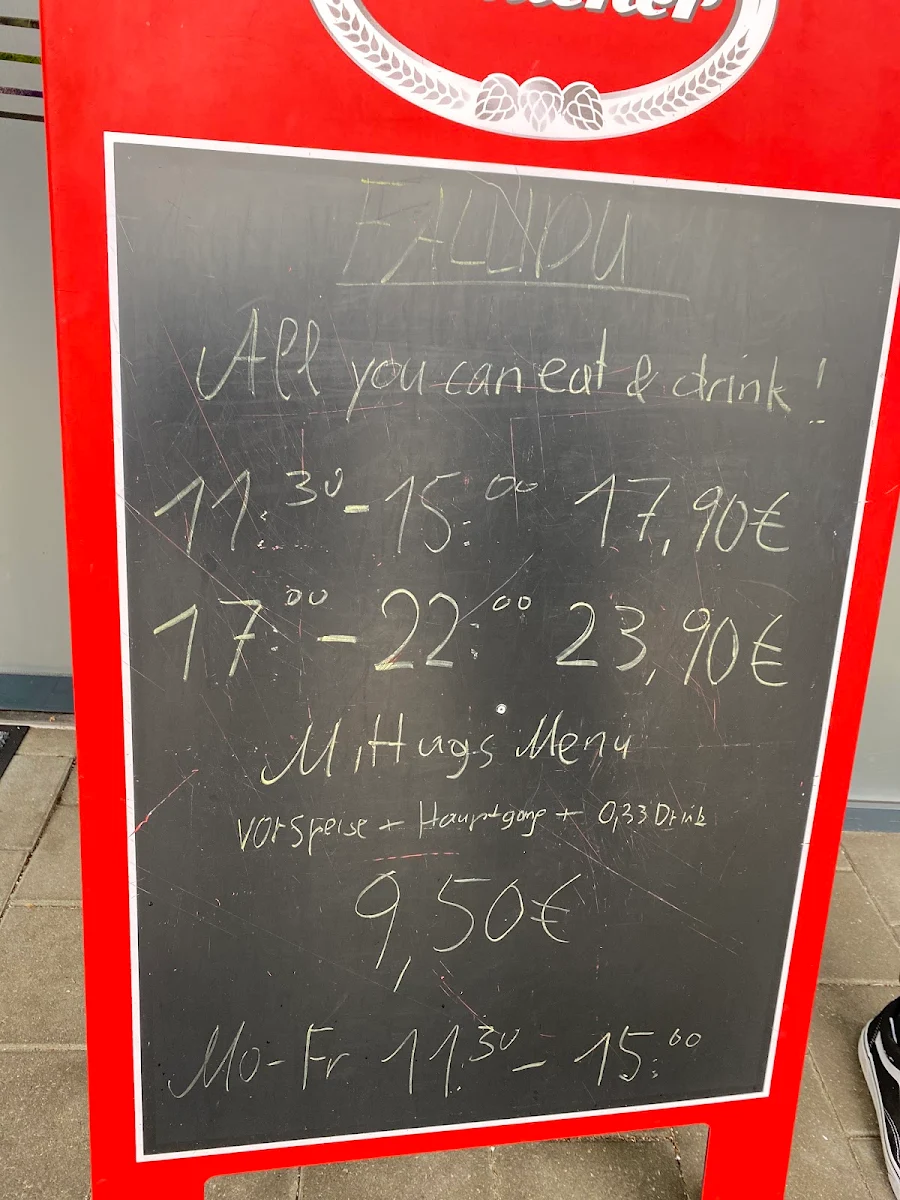 All you can eat & drink!
11.30 - 15:00 17,90€
17:00 - 22:00 23,90€
Mittags Menu
Vorspeise + Hauptgang + 0,33 Drink
9,50€
Mo-Fr 11.30 - 15:00